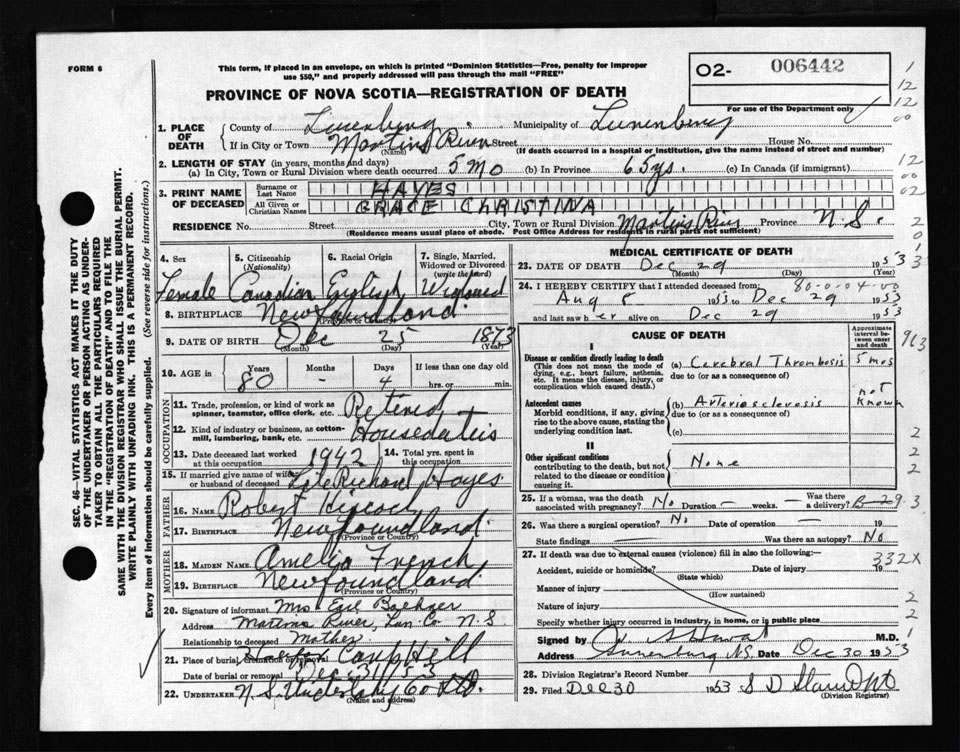 FORM 6
This form, if placed in an envelope, on which is printed "Dominion Statistics—Free, penalty for improper
use $50," and properly addressed will pass through the mail "FREE"
O2- 006442
For use of the Department only
PROVINCE OF NOVA SCOTIA—REGISTRATION OF DEATH
1. PLACE OF DEATH
County of Lunenburg Municipality of Lunenburg
If in City or Town Martins River Street House No.
(Name) (If death occurred in a hospital or institution, give the name instead of street and number)
2. LENGTH OF STAY (in years, months and days)
(a) In City, Town or Rural Division where death occurred 5 mo (b) In Province 65 ys. (c) In Canada (if immigrant)
3. PRINT NAME OF DECEASED
Surname or Last Name HAYES
All Given or Christian Names GRACE CHRISTINA
RESIDENCE No. Street City, Town or Rural Division Martins River Province N.S.
(Residence means usual place of abode. Post Office Address for residents in rural parts not sufficient)
4. Sex 5. Citizenship (Nationality) 6. Racial Origin 7. Single, Married, Widowed or Divorced (write the word)
Female Canadian English Widowed
8. BIRTHPLACE Newfoundland
(Province or Country)
9. DATE OF BIRTH Dec 25 1873
(Month) (Day) (Year)
10. AGE in Years Months Days If less than one day
80 - 4 hrs. or min.
OCCUPATION
11. Trade, profession, or kind of work as spinner, teamster, office clerk, etc. Retired
12. Kind of industry or business, as cotton-mill, lumbering, bank, etc. Houseduties
13. Date deceased last worked at this occupation 1942 14. Total yrs. spent in this occupation
15. If married give name of wife or husband of deceased Late Richard Hayes
FATHER
16. NAME Robert
17. BIRTHPLACE Newfoundland
(Province or Country)
MOTHER
18. MAIDEN NAME Amelia French
19. BIRTHPLACE Newfoundland
(Province or Country)
20. Signature of informant Mrs Earl
Address Martins River, Lun. Co. N.S.
Relationship to deceased Mother
21. Place of burial, cremation or removal Halifax Camp Hill
Date of burial or removal Dec 31 53
22. UNDERTAKER N.S. Undertaking Co Ltd.
(Name and address)
MEDICAL CERTIFICATE OF DEATH
23. DATE OF DEATH Dec 29 1953
(Month) (Day) (Year)
24. I HEREBY CERTIFY that I attended deceased from: 80-0-04-00
Aug 5 1953 to Dec 29 1953
and last saw her alive on Dec 29 1953
CAUSE OF DEATH
Approximate interval between onset and death
I
Disease or condition directly leading to death
(This does not mean the mode of dying, e.g., heart failure, asthenia, etc. It means the disease, injury, or complication which caused death.)
(a) Cerebral Thrombosis 5 mos
due to (or as a consequence of)
Antecedent causes
Morbid conditions, if any, giving rise to the above cause, stating the underlying condition last.
(b) Arteriosclerosis not known
due to (or as a consequence of)
(c)
II
Other significant conditions
contributing to the death, but not related to the disease or condition causing it.
None
25. If a woman, was the death associated with pregnancy? No Duration — weeks. Was there a delivery? B-29
26. Was there a surgical operation? No Date of operation — 19
State findings Was there an autopsy? No
27. If death was due to external causes (violence) fill in also the following:—
332X
Accident, suicide or homicide? Date of injury 19
(State which)
Manner of injury
(How sustained)
Nature of injury
Specify whether injury occurred in industry, in home, or in public place
Signed by M.D.
Address Lunenburg N.S. Date Dec 30 1953
28. Division Registrar's Record Number
29. Filed Dec 30 1953
(Division Registrar)
SEC. 46—VITAL STATISTICS ACT MAKES IT THE DUTY
OF THE UNDERTAKER OR PERSON ACTING AS UNDER-
TAKER TO OBTAIN ALL THE PARTICULARS REQUIRED
IN THE "REGISTRATION OF DEATH" AND TO FILE THE
SAME WITH THE DIVISION REGISTRAR WHO SHALL ISSUE THE BURIAL PERMIT.
WRITE PLAINLY WITH UNFADING INK. THIS IS A PERMANENT RECORD.
Every item of information should be carefully supplied. (See reverse side for instructions.)
1
12
12
00
12
00
02
2
0
1
3
963
2
2
2
3
2
2
1